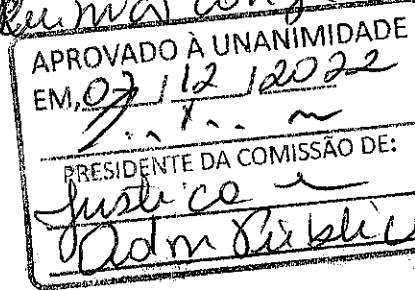 Reunião conj
APROVADO À UNANIMIDADE
EM, 07 / 12 / 2022
PRESIDENTE DA COMISSÃO DE:
Justiça e
Adm Públic